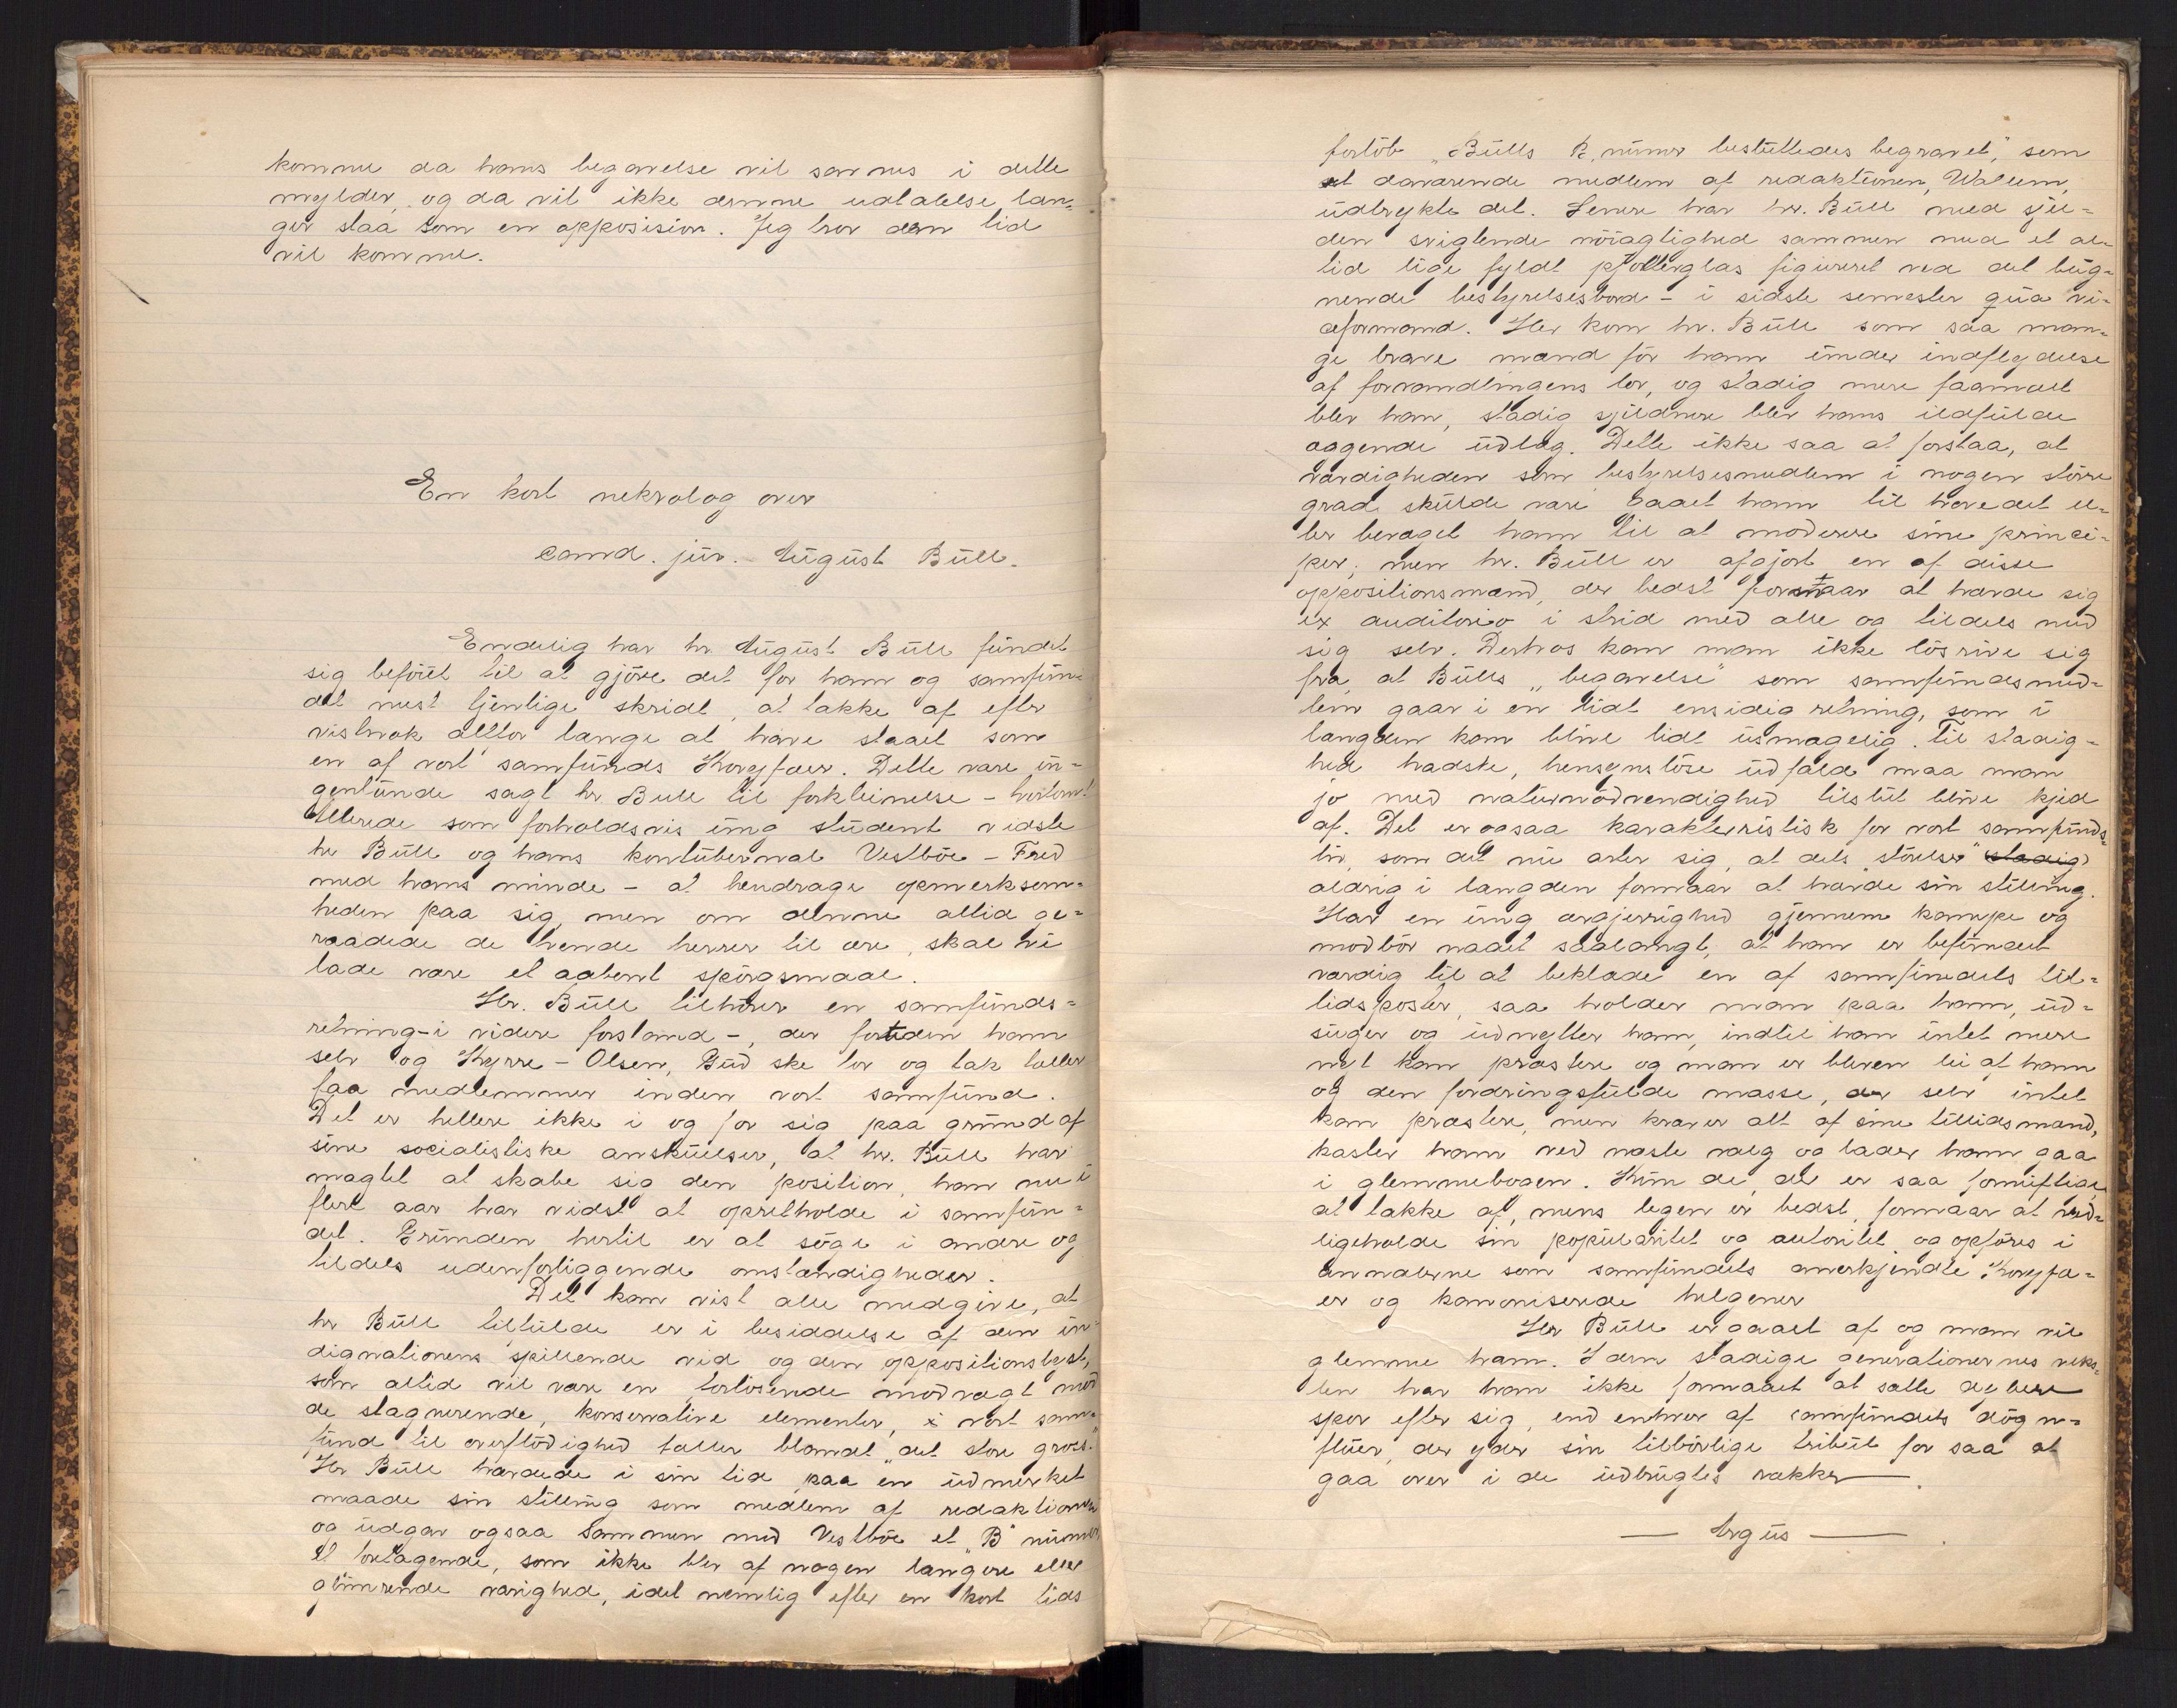 komme da hans begavelse vil savnes i dette
mylder, og da vil ikke denne udtalelse læn-
ger staa som en opposision. Jeg tror den tid
vil komme.
En kort nekrolog over
cand. jur. August Bull.
Endelig har hr. August Bull fundet
sig beföiet til at gjöre det for ham og samfun-
det mest tjenlige skridt, at takke af efter
vistnok altfor længe at have staaet som
en af vort samfunds Koryfæer. Dette være in-
genlunde sagt hr. Bull til forkleinelse - tvertom!
Allerede som forholdsvis ung student vidste
hr Bull og hans kontubernal Vestböe - Fred
med hans minde - at hendrage opmerksom-
heden paa sig, men om denne altid ge-
raadede de tvende herrer til ære, skal vi
lade være et aabent spörgsmaal.
Hr. Bull tilhörer en samfunds-
retning - i videre forstand -, der foruden ham
selv og Kyrre-Olsen, Gud ske lov og tak tæller
faa medlemmer inden vort samfund.
Det er hellere ikke i og for sig paa grund af
sine socialistiske anskuelser, at hr. Bull har
magtet at skabe sig den position, han nu i
flere aar har vidst at opretholde i samfun-
det. Grunden hertil er at söge i andre og
tildels udenforliggende omstændigheder.
Det kan vist alle medgive, at
hr Bull tilfulde er i besiddelse af den in-
dignationens spillende vid og den oppositionslyst,
som altid vil være en forlösende modvægt mod
de stagnerende, konservative elementer, i vort sam-
fund til overflödighed tæller blandt "det store gros."
Hr Bull hævdede i sin tid paa en udmerket
maade sin stilling som medlem af redaktionen
og udgav ogsaa sammen med Vestböe et "B" numer
et foretagende, som ikke blev af nogen længere eller
glimrende varighed, idet nemlig efter en kort tids
forlöb "Bulls B. numer besluttedes begravet," som
et daværende medlem af redaktionen, Wallem,
udtrykte det. Senere har hr. Bull med sjel-
den svigtende nöiagtighed sammen med et al-
tid lige fyldt pjolterglas figureret ved det bug-
nende bestyrelsesbord - i sidste semester qua vi-
ceformand. Her kom hr. Bull som saa man-
ge brave mænd för ham under indflydelse
af forvandlingens lov, og stadig mere faamælt
blev han, stadig sjeldnere blev hans ildfulde
æggende udlæg. Dette ikke saa at forstaa, at
værdigheden som bestyrelsesmedlem i nogen större
grad skulde være gaaet ham til hovedet el-
ler bevæget ham til at moderere sine princi-
per; men hr. Bull er afgjort en af disse
oppositionsmænd, der bedst forstaar at hævde sig
ex auditorio i strid med alle og tildels med
sig selv. Derhos kan man ikke lösrive sig
fra, at Bulls "begavelse" som samfundsmed-
lem gaar i en lidt ensidig retning, som i
længden kan blive lidt usmagelig. Til stadig-
hed hadske, hensynslöse udfald maa man
jo med naturnödvendighed tilslut blive kjed
af. Det er ogsaa karakteristisk for vort samfunds-
liv, som det nu arter sig, at dets "störelser"
aldrig i længden formaar at hævde sin stilling.
Har en ung ærgjerrighed gjennem kampe og
modbör naaet saalangt, at han er befundet
værdig til at beklæde en af samfundets til-
lidsposter, saa holder man paa ham, ud-
suger og udnytter ham, indtil han intet mere
nyt kan præstere og man er bleven lei af ham
og den fordringsfulde masse, der selv intet
kan præstere, men kræver alt af sine tillidsmænd,
kaster ham ved næste valg og lader ham gaa
i glemmebogen. Kun de, der er saa fornuftige
at takke af, mens legen er bedst, formaar at ved-
ligeholde sin popularitet og autoritet og opföres i
annalerne som samfundets anerkjendte Koryfæ-
er og kanoniserede helgener
Hr Bull er gaaet af og man vil
glemme ham. I den stadige generationernes veks-
len har han ikke formaaet at sætte dybere
spor efter sig, end enhver af samfundets dögn-
fluer, der yder sin tilbörlige tribut for saa at
gaa over i de udbrugtes rækker
— Argus —